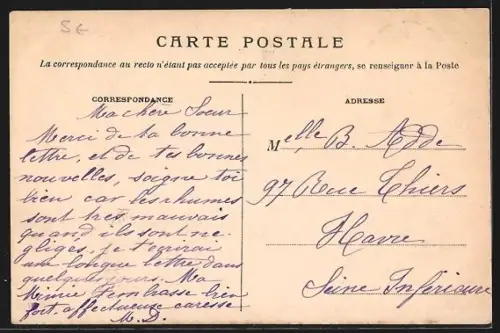 5€
CARTE POSTALE
La correspondance au recto n'étant pas acceptée par tous les pays étrangers, se renseigner à la Poste
CORRESPONDANCE
Ma chère Soeur
Merci de ta bonne
lettre, et de tes bonnes
nouvelles, soigne toi
bien car les rhumes
sont très mauvais
quand ils sont né-
gligés, je t'écrirai
une longue lettre dans
quelques jours. Ma
Mimie t'embrasse bien
fort, affectueuse caresse
M. D.
ADRESSE
Melle B. Adde
97 Rue Thiers
Havre
Seine Inférieure